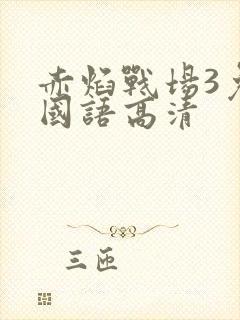 赤焰戰場3
國語高清
三匝